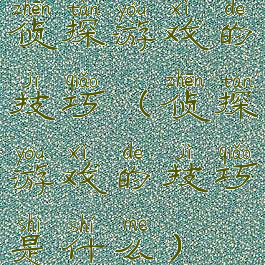 zhēn tàn yóu xì de
侦探游戏的
jì qiǎo zhēn tàn
技巧(侦探
yóu xì de jì qiǎo
游戏的技巧
shì shí me
是什么)